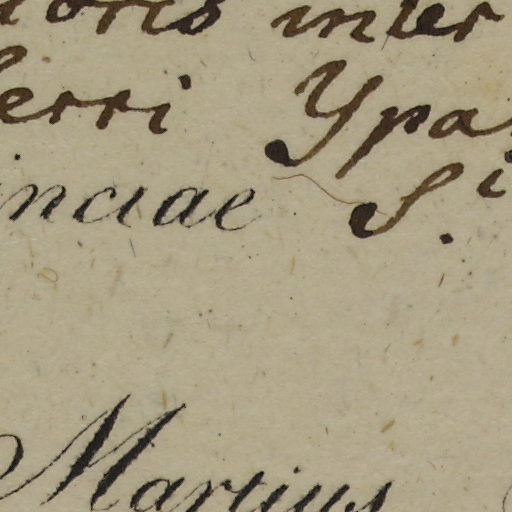 oris inter
ferri Ypa
inciae S.
Martius